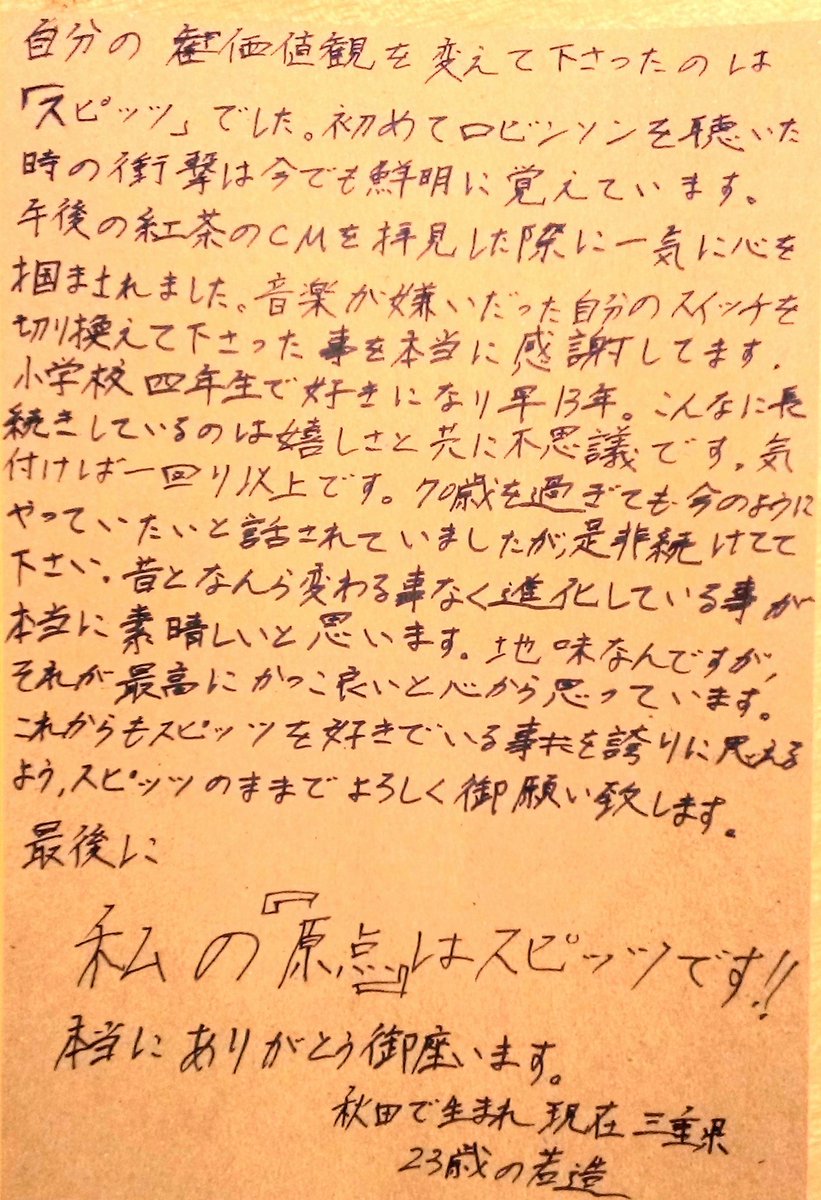 自分の価値観を変えて下さったのは
「スピッツ」でした。初めてロビンソンを聴いた
時の衝撃は今でも鮮明に覚えています。
午後の紅茶のCMを拝見した際に一気に心を
掴まれました。音楽が嫌いだった自分のスイッチを
切り換えて下さった事を本当に感謝してます.
小学校四年生で好きになり早13年。こんなに長
続きしているのは嬉しさと共に不思議です。気
付けば一回り以上です。70歳を過ぎても今のように
やっていたいと話されていましたが,是非続けてて
下さい。昔となんら変わる事なく進化している事が
本当に素晴しいと思います。地味なんですが,
それが最高にかっこ良いと心から思っています。
これからもスピッツを好きでいる事を誇りに思える
よう,スピッツのままでよろしく御願い致します。
最後に
私の『原点』はスピッツです!!
本当にありがとう御座います。
秋田で生まれ現在三重県
23歳の若造